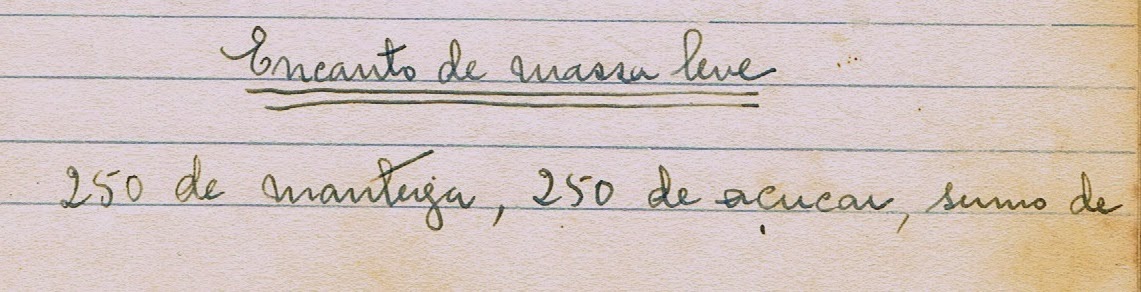 Encanto de massa leve
250 de manteiga, 250 de açucar, sumo de